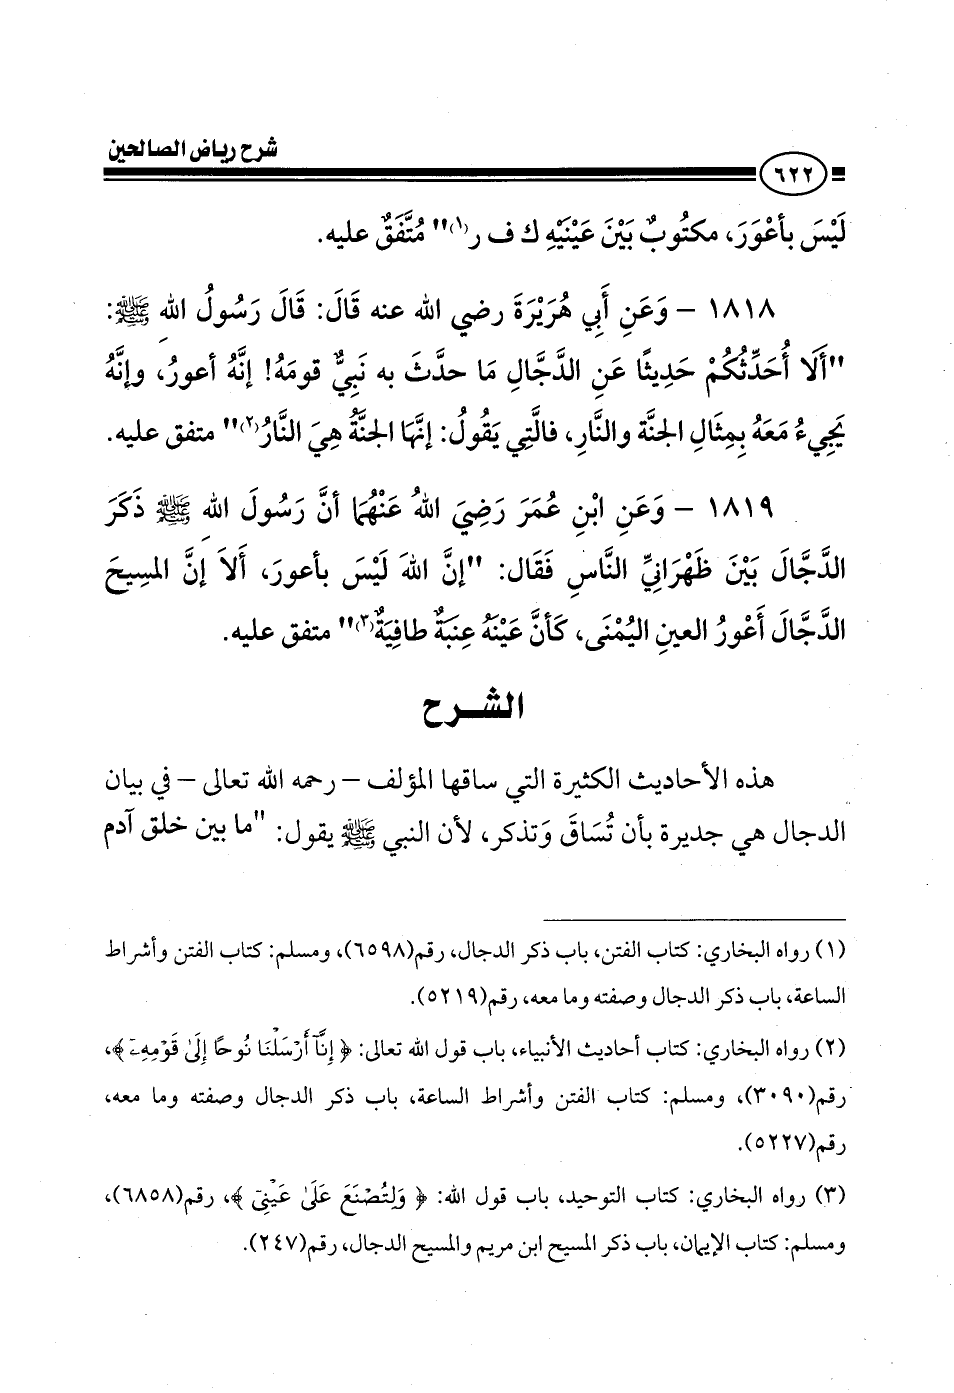 شرح رياض الصالحين
٦٢٢
لَيْسَ بأعْوَرَ، مكتُوبٌ بَيْنَ عَيْنَيْهِ ك ف ر(١)" مُتَّفَقٌ عليه.
١٨١٨ – وَعَنِ أَبِي هُرَيْرَةَ رضي الله عنه قَالَ: قَالَ رَسُولُ اللهِ ﷺ:
"أَلَا أُحَدِّثُكُمْ حَدِيثًا عَنِ الدَّجَّالِ مَا حدَّثَ به نَبِيٌّ قومَهُ! إنَّهُ أعورُ، وإنَّهُ
يَجِيءُ مَعَهُ بِمِثَالِ الجنَّة والنَّارِ، فالَّتِي يَقُولُ: إنَّهَا الجنَّةُ هِيَ النَّارُ(٢)" متفق عليه.
١٨١٩ – وَعَنِ ابْنِ عُمَرَ رَضِيَ اللهُ عَنْهُمَا أنَّ رَسُولَ اللهِ ﷺ ذَكَرَ
الدَّجَّالَ بَيْنَ ظَهْرَانِيِّ النَّاسِ فَقَال: "إنَّ اللهَ لَيْسَ بأعورَ، أَلاَ إنَّ المسِيحَ
الدَّجَّالَ أَعْورُ العينِ اليُمْنَى، كَأنَّ عَيْنَهُ عِنبَةٌ طافِيَةٌ(٣)" متفق عليه.
الشـرح
هذه الأحاديث الكثيرة التي ساقها المؤلف – رحمه الله تعالى – في بيان
الدجال هي جديرة بأن تُسَاقَ وَتذكر، لأن النبي ﷺ يقول: "ما بين خلق آدم
(١) رواه البخاري: كتاب الفتن، باب ذكر الدجال، رقم(٦٥٩٨)، ومسلم: كتاب الفتن وأشراط
الساعة، باب ذكر الدجال وصفته وما معه، رقم(٥٢١٩).
(٢) رواه البخاري: كتاب أحاديث الأنبياء، باب قول الله تعالى: ﴿ إِنَّآ أَرْسَلْنَا نُوحًا إِلَىٰ قَوْمِهِۦٓ ﴾،
رقم(٣٠٩٠)، ومسلم: كتاب الفتن وأشراط الساعة، باب ذكر الدجال وصفته وما معه،
رقم(٥٢٢٧).
(٣) رواه البخاري: كتاب التوحيد، باب قول الله: ﴿ وَلِتُصْنَعَ عَلَىٰ عَيْنِىٓ ﴾، رقم(٦٨٥٨)،
ومسلم: كتاب الإيمان، باب ذكر المسيح ابن مريم والمسيح الدجال، رقم(٢٤٧).